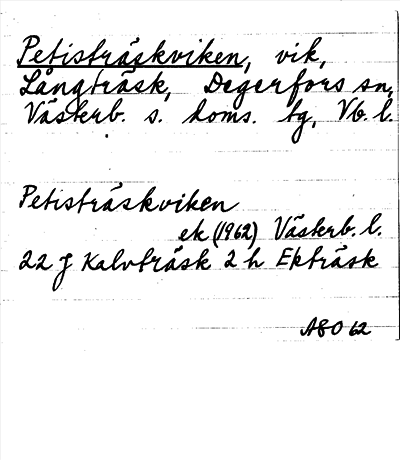 Petisträskviken, vik,
Långträsk, Degerfors sn,
Västerb. s. doms. tg, Vb. l.
Petisträskviken
ek (1962) Västerb. l.
22 J Kalvträsk 2 h Ekträsk
ASO 62